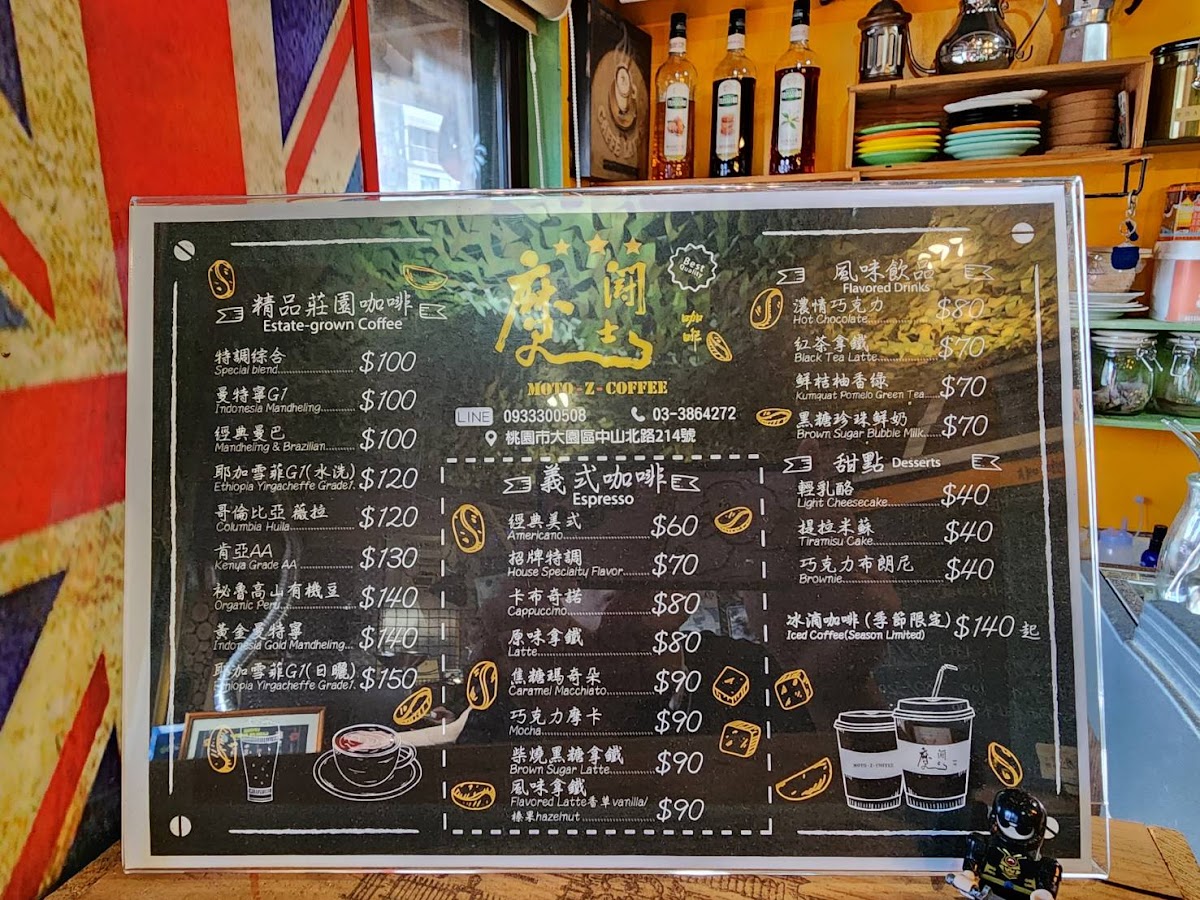 精品莊園咖啡
Estate-grown Coffee
特調綜合 $100
Special blend
曼特寧G1 $100
Indonesia Mandheling
經典曼巴 $100
Mandheling & Brazilian
耶加雪菲G1(水洗) $120
Ethiopia Yirgacheffe Grade1.
哥倫比亞 薇拉 $120
Columbia Huila
肯亞AA $130
Kenya Grade AA
祕魯高山有機豆 $140
Organic Peru
黃金曼特寧 $140
Indonesia Gold Mandheling
耶加雪菲G1(日曬) $150
Ethiopia Yirgacheffe Grade1.
Best Quality
咖啡
MOTO-Z-COFFEE
LINE 0933300508 03-3864272
桃園市大園區中山北路214號
義式咖啡
Espresso
經典美式 $60
Americano
招牌特調 $70
House Specialty Flavor
卡布奇諾 $80
Cappuccino
原味拿鐵 $80
Latte
焦糖瑪奇朵 $90
Caramel Macchiato
巧克力摩卡 $90
Mocha
柴燒黑糖拿鐵 $90
Brown Sugar Latte
風味拿鐵
Flavored Latte香草vanilla/
榛果hazelnut $90
風味飲品
Flavored Drinks
濃情巧克力 $80
Hot Chocolate
紅茶拿鐵 $70
Black Tea Latte
鮮桔柚香綠 $70
Kumquat Pomelo Green Tea
黑糖珍珠鮮奶 $70
Brown Sugar Bubble Milk
甜點 Desserts
輕乳酪 $40
Light Cheesecake
提拉米蘇 $40
Tiramisu Cake
巧克力布朗尼 $40
Brownie
冰滴咖啡(季節限定) $140起
Iced Coffee(Season Limited)
MOTO-Z-COFFEE